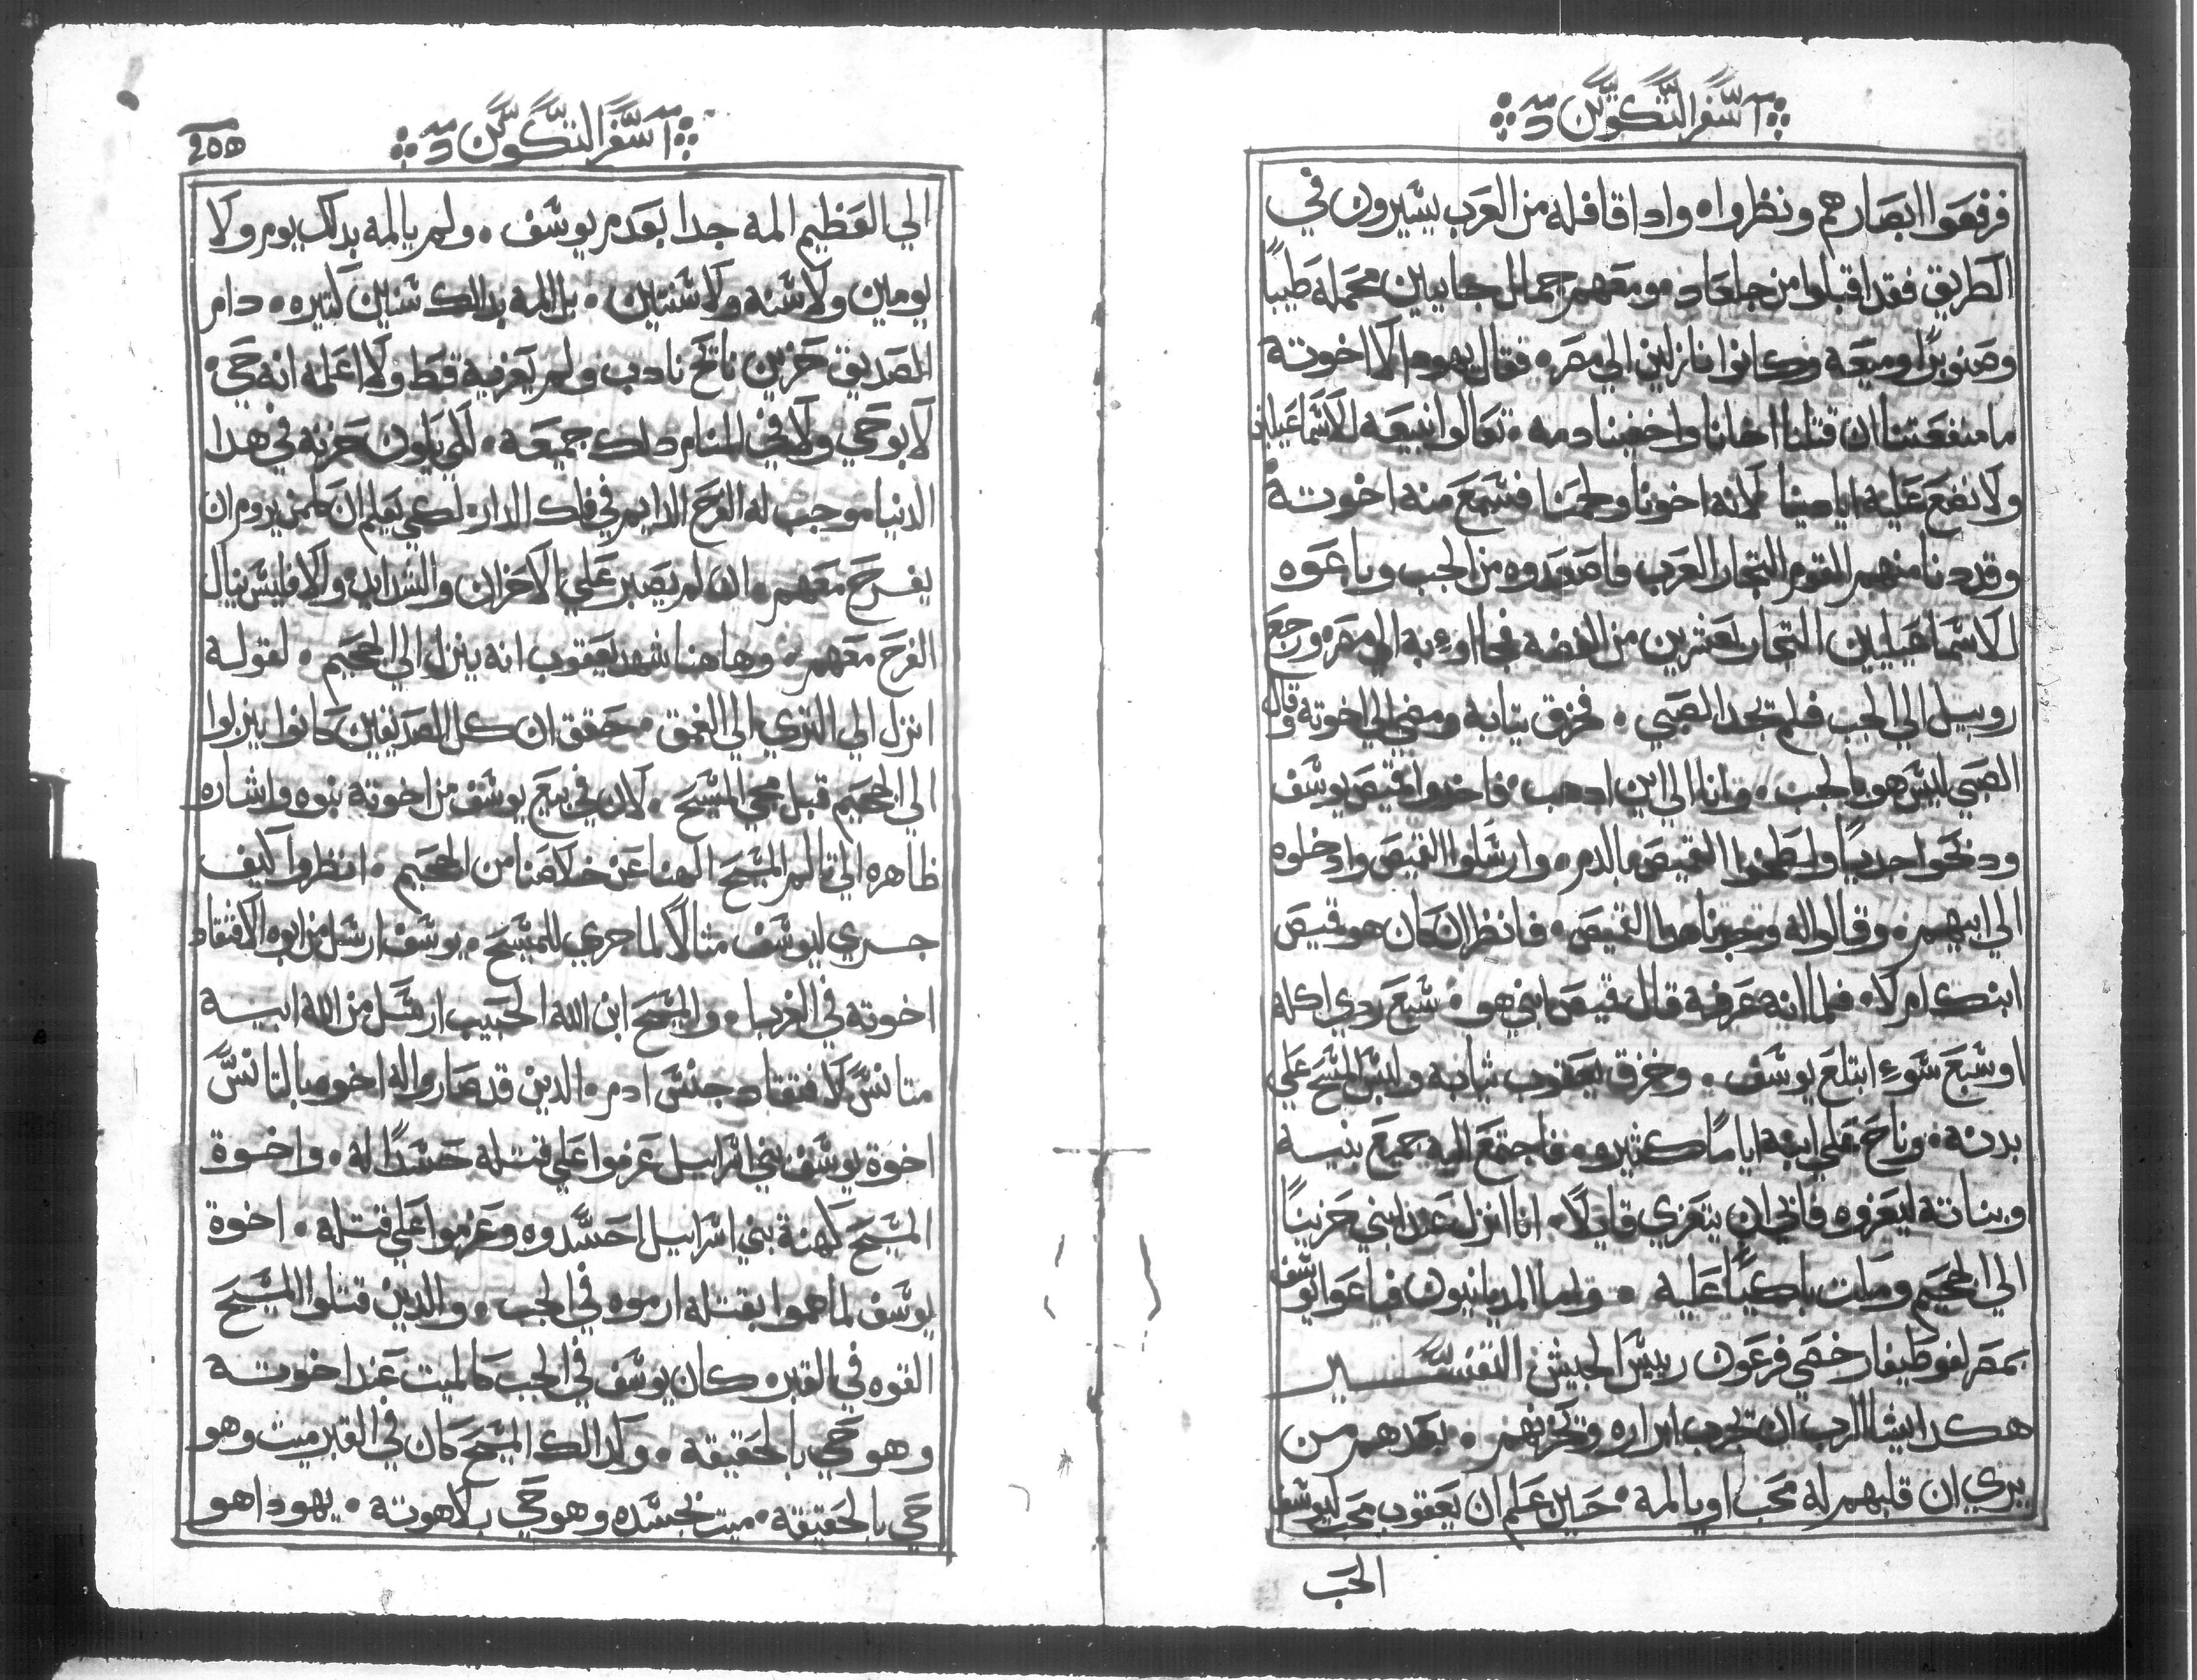 سفر التكوين
فرفعوا ابصارهم ونظروا ٠ واداقافله من العرب يسيرون في
الطريق فقد اقبلوا من جلعاد ٠ ومعهم جمال جايين محمله طيبًا
وصنوبرًا وميعه وكانوا نازلين الي مصر ٠ فقال يهودا لاخوته
ما منفعتنا ان قتلنا اخانا واخفينا دمه ٠ تعالوا نبيعه للاسماعيليين
ولا نضع عليه ايادينا لانه اخونا ولحمنا فسمع منه اخوته
وقد دنا منهم القوم التجار العرب فاصعدوه من الجب وباعوه
للاسماعيليين التجار بعشرين من الفضه فجااوء به الي مصر ٠ ورجع
روبيل الي الجب فلم يجد الصبي ٠ فخرق تيابه ومضي الي اخوته وقال
الصبي ليس هو بالجب ٠ وانا الي اين ادهب ٠ فاخدوا قميص يوسف
ودبحوا جديًا ولطخوا القميص بالدم ٠ وارسلوا القميص وادخلوه
الي ابيهم ٠ وقالوا له وجدنا هدا القميص ٠ فانظر ان كان هو قميص
ابنك ام لا ٠ فلما انه عرفه قال قميص ابني هو ٠ سبع ردي اكله
او سبع سوء ابتلع يوسف ٠ وخرق يعقوب تيابه ولبس المسح علي
بدنه ٠ وناح علي ابنه ايامًا كثيره ٠ فاجتمع اليه جميع بنيه
وبناته ليعزوه فابي ان يتعزي قايلًا ٠ انا انزل عند ابني حزينًا
الي الجحيم ومات باكيًا عليه ٠ واما المديانيون فباعوا يوسف
بمصر لفوطيفار خصي فرعون رييس الجيش التفسير
هكدا يشا الرب ان يجرب ابراره ويحزنهم ٠ بعدهم من
يري ان قلبهم له محب او يالمه ٠ حين علم ان يعقوب محب ليوسف
الحب
سفر التكوين
الي العظيم المه جدا بعدم يوسف ٠ ولم يالمه بدلك يوم ولا
يومين ولا سنه ولا سنتين ٠ بل المه بدالك سنين كتيره ٠ دام
الصديق حزين نايح نادب ولم يعزيه قط ولا اعلمه انه حي ٠
لا بوحي ولا في المنام دلك جميعه ٠ لكي يكون حزنه في هدا
الدنيا موجب له الفرح الدايم في تلك الدار ٠ لكي يعلم ان كلمن يروم ان
يفرح معهم ٠ ان لم يصبر علي الاحزان والشدايد ٠ والا فليس ينال
الفرح معهم ٠ وهاهنا شهد يعقوب انه ينزل الي الجحيم ٠ لقوله
انزل الي التري الي العمق ٠ حقق ان كل الصديقين كانوا ينزلوا
الي الجحيم قبل مجي المسيح ٠ لان في بيع يوسف من اخوته نبوه واشاره
ظاهره الي تالم المسيح الهنا عن خلاصنا من الجحيم ٠ انظروا كيف
جري ليوسف متالًا لما جري للمسيح ٠ يوسف ارسل من ابوه لافتقاد
اخوته في الغربا ٠ والمسيح ابن الله الحبيب ارسل من الله ابيه
متانسً لافتقاد جنس ادم ٠ الدين قد صاروا له اخوه بالتانس
اخوة يوسف بني اسراييل عزموا علي قتله حسدًا له ٠ واخوة
المسيح كهنة بني اسراييل احسدوه وعزموا علي قتله ٠ اخوة
يوسف لما هموا بقتله ارموه في الجب ٠ والدين قتلوا المسيح
القوه في القبر ٠ كان يوسف في الجب كالميت عند اخوته
وهو حي بالحقيقه ٠ وكدالك المسيح كان في القبر ميت وهو
حي بالحقيقه ٠ ميت بجسده وهو حي بلاهوته ٠ يهودا هو